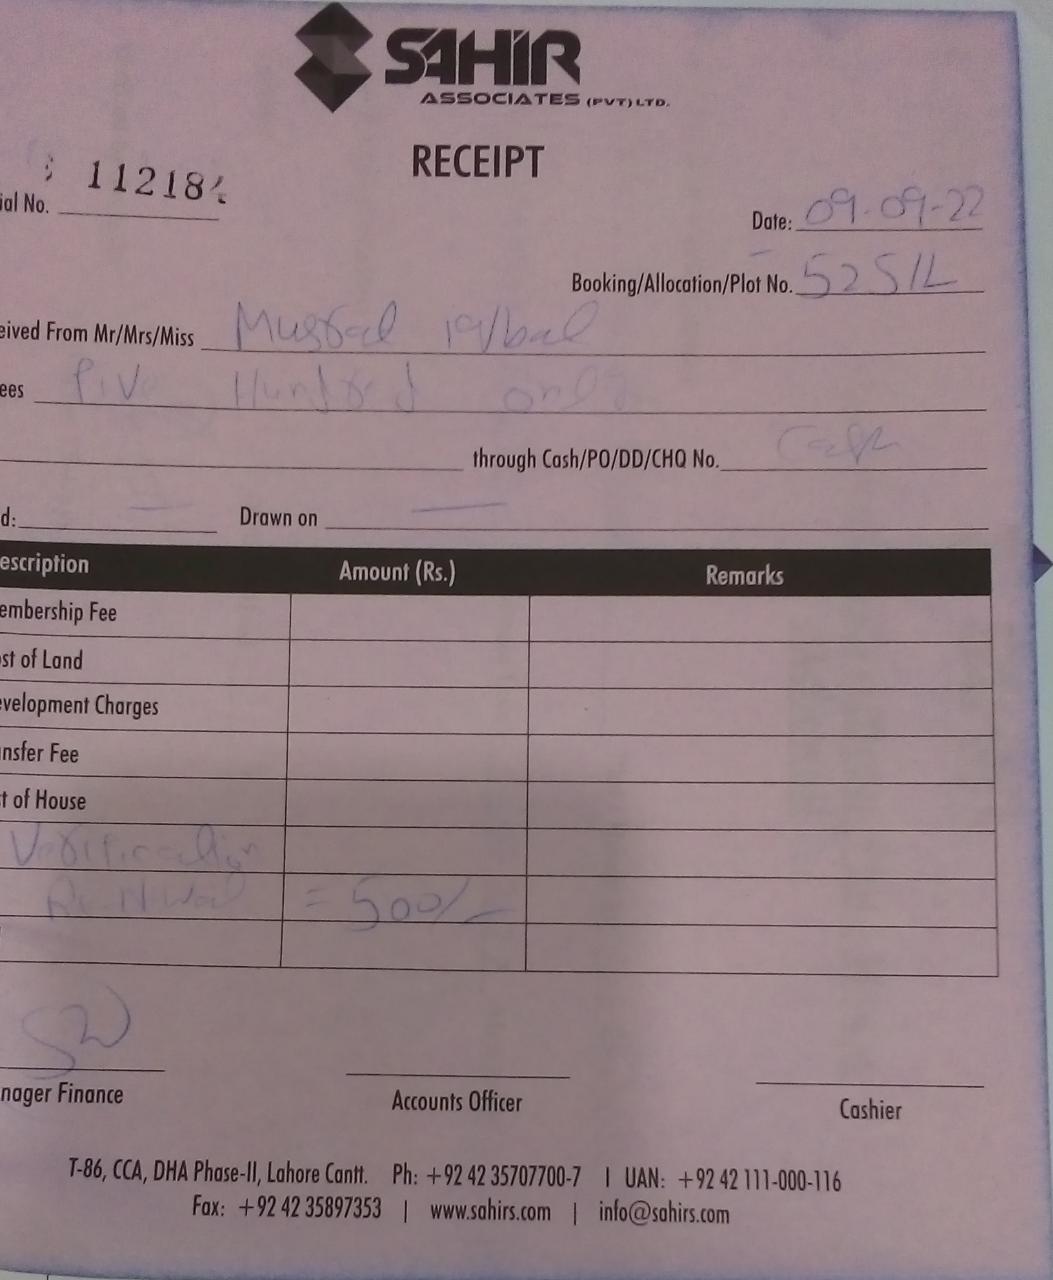 SAHIR
ASSOCIATES (PVT) LTD.
RECEIPT
11218
ial No.
Date: 09-09-22
Booking/Allocation/Plot No. 525/L
eived From Mr/Mrs/Miss
ees Five Hundred only
through Cash/PO/DD/CHQ No. Cash
d: — Drawn on —
escription Amount (Rs.) Remarks
embership Fee
st of Land
evelopment Charges
nsfer Fee
t of House
Verification
= 500/-
nager Finance Accounts Officer Cashier
T-86, CCA, DHA Phase-II, Lahore Cantt. Ph: +92 42 35707700-7 | UAN: +92 42 111-000-116
Fax: +92 42 35897353 | www.sahirs.com | info@sahirs.com